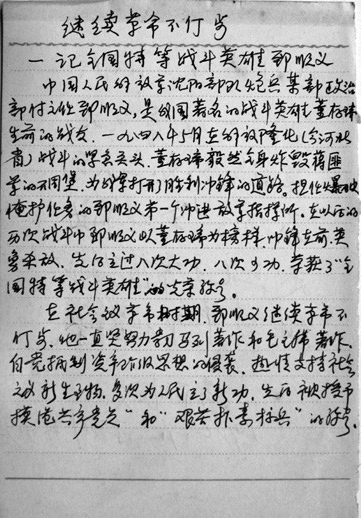 继续革命不停步
一记全国特等战斗英雄郅顺义
中国人民解放军沈阳部队炮兵某部政治
部付主任郅顺义，是我国著名的战斗英雄董存瑞
生前的战友。一九四八年5月在解放隆化(今河北
省)战斗的紧要关头，董存瑞毅然舍身炸毁蒋匪
军的桥堡，为战军打开了胜利冲锋的道路。担任爆破
掩护任务的郅顺义第一个冲进敌军指挥所。在以后的
历次战斗中郅顺义以董存瑞为榜样，冲锋在前，英
勇杀敌，先后立过八次大功，八次小功，荣获了“全
国特等战斗英雄”的光荣称号。
在社会主义革命时期，郅顺义继续革命不
停步，他一直坚持努力学习马列著作和毛主席著作，
自觉抵制资产阶级思想的侵袭，热情支持社会
主义新生事物，多次为人民立了新功，先后被授予
模范共产党员“和”艰苦朴素标兵”的称号。